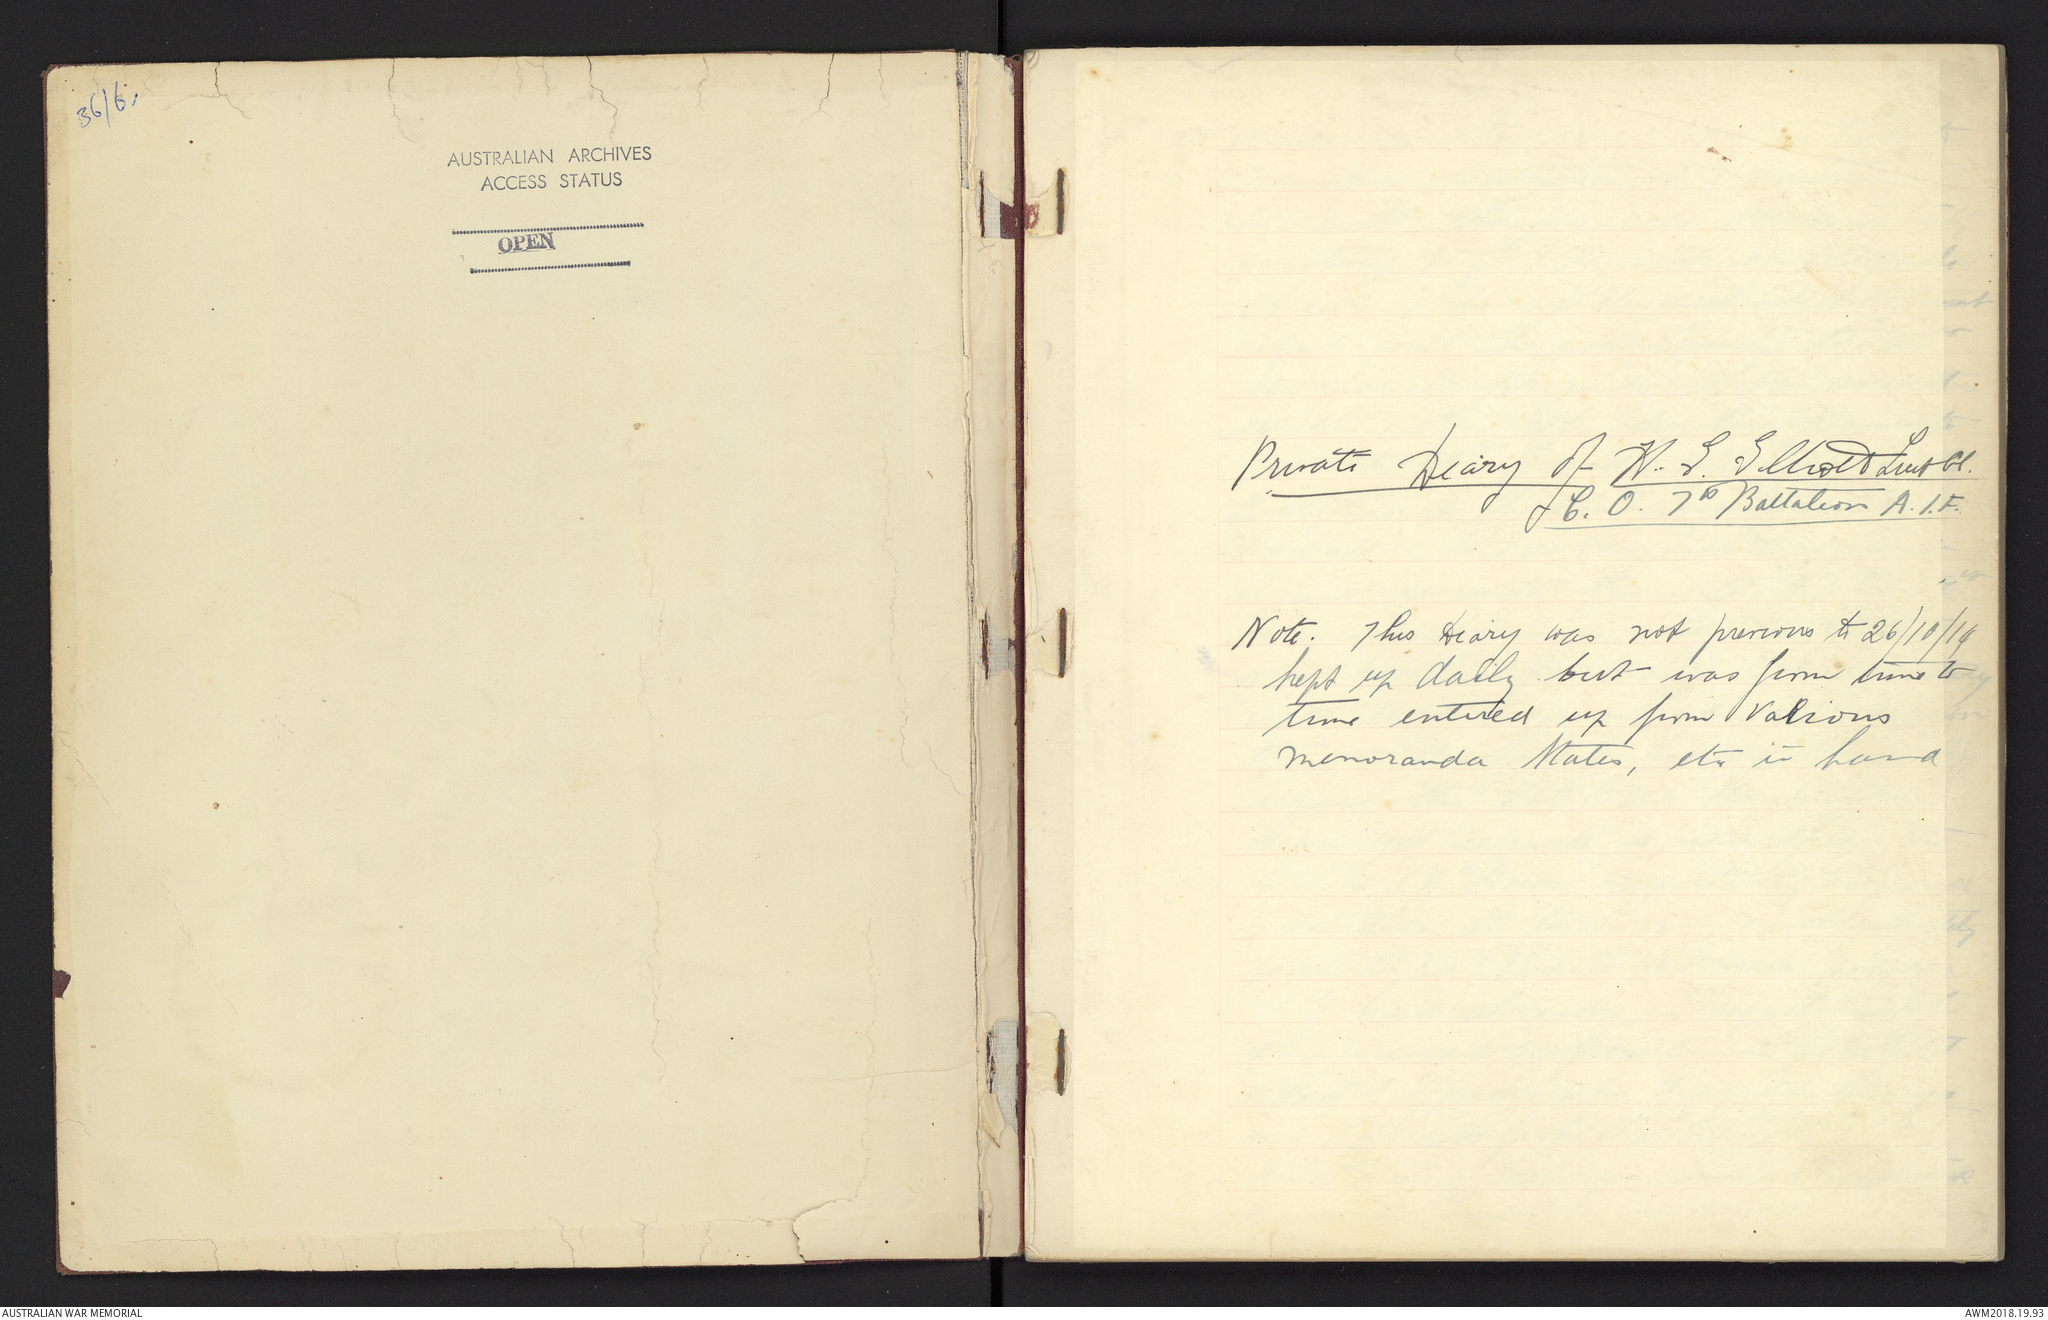 36/6.
AUSTRALIAN ARCHIVES
ACCESS STATUS
OPEN
Private Diary of H. E. Elliott Lieut Col.
C. O. 7th Battalion A.I.F.
Note. This Diary was not previous to 26/10/14
kept up daily but was from time to
time entered up from various
memoranda States, etc in hand
AUSTRALIAN WAR MEMORIAL
AWM2018.19.93